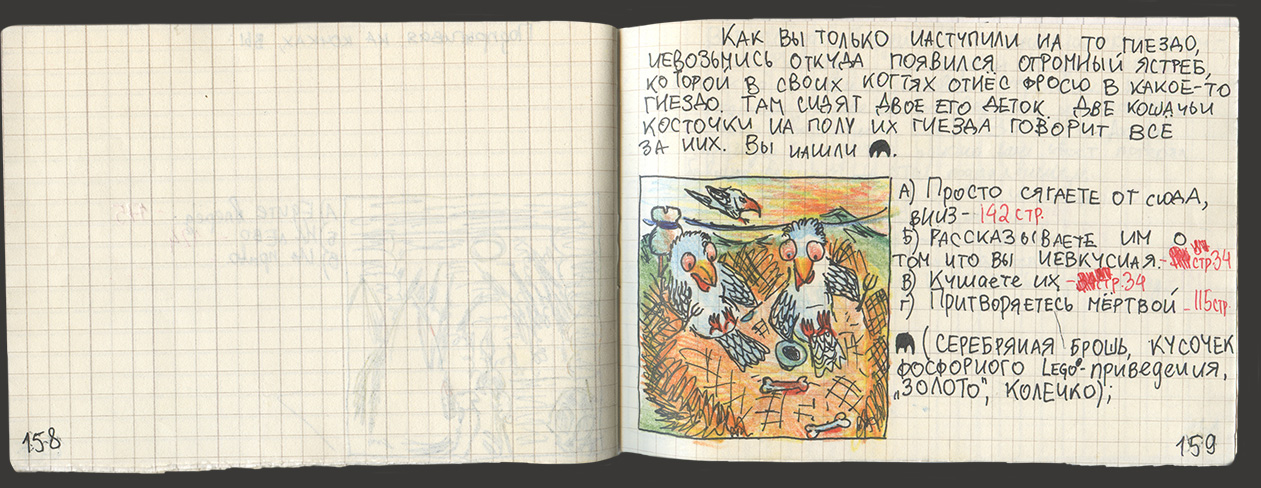 158
Как вы только наступили на то гнездо,
невозьмись откуда появился огромный ястреб,
которой в своих когтях отнёс Фросю в какое-то
гнездо. Там сидят двое его деток. Две кошачьи
косточки на полу их гнезда говорит всё
за них. Вы нашли.
А) Просто сягаете от сюда,
вниз - 142 стр.
Б) Рассказываете им о
том что вы невкусная. - стр. 34
В) Кушаете их - стр. 34
Г) Притворяетесь мёртвой - 115 стр.
(серебряная брошь, кусочек
фосфорного LEGO®-приведения,
„золото", колечко);
159